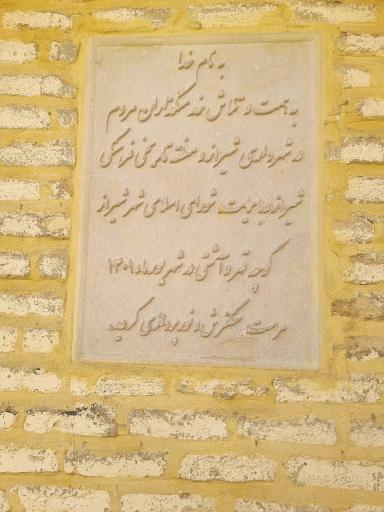 به نام خدا
به همت و تلاش خدمتگذاران مردم
در شهرداری شیراز و منطقه تاریخی فرهنگی
شیراز و با حمایت شورای اسلامی شهر شیراز
کوچه قهر و آشتی در شهریور ماه ۱۴۰۱
مرمت، سنگفرش و نورپردازی گردید